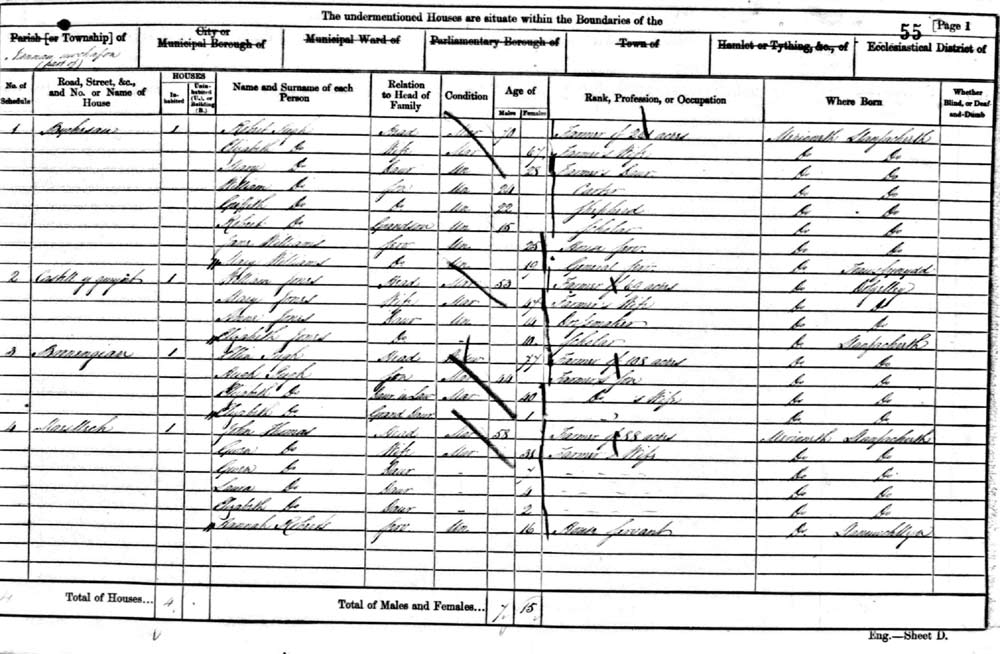 The undermentioned Houses are situate within the Boundaries of the
55 [Page 1
Parish [or Township] of
City or Municipal Borough of
Municipal Ward of
Parliamentary Borough of
Town of
Hamlet or Tything, &c., of
Ecclesiastical District of
(part of)
No. of Schedule
Road, Street, &c., and No. or Name of House
HOUSES
Inhabited
Uninhabited (U.), or Building (B.)
Name and Surname of each Person
Relation to Head of Family
Condition
Age of
Males
Females
Rank, Profession, or Occupation
Where Born
Whether Blind, or Deaf-and-Dumb
1 1 Robert Pugh Head Mar 70 Farmer of acres Merioneth Llanfachreth
Elizabeth Do Wife Mar 67 Farmer's Wife Do Do
Mary Do Daur Un 28 Farmer's Daur Do Do
William Do Son Un 24 Carter Do Do
Griffith Do Do Un 22 Shepherd Do Do
Robert Do Grandson Un 15 Scholar Do Do
Jane Williams Serv Un 25 House Serv Do Do
Mary Williams Do Un 19 General Serv Do Trawsfynydd
2 1 William Jones Head Mar 53 Farmer of acres Do Dolgelley
Mary Jones Wife Mar 47 Farmer's Wife Do Do
Jones Daur Un 14 Do Do
Elizabeth Jones Do - 10 Scholar Do Llanfachreth
3 1 Ellin Pugh Head 77 Farmer of 108 acres Do Do
Hugh Pugh Son Mar 44 Farmer's Son Do Do
Elizabeth Do Daur in Law Mar 40 Do s Wife Do Do
Elizabeth Do Grand Daur 1 Do Do
4 1 John Thomas Head Mar 53 Farmer of 88 acres Merioneth Llanfachreth
Do Wife Mar Farmer's Wife Do Do
Do Daur - Do Do
Laura Do Daur - 4 Do Do
Elizabeth Do Daur - 2 Do Do
Hannah Roberts Serv Un 16 House Servant Do
Total of Houses... 4
Total of Males and Females... 7 15
Eng.—Sheet D.